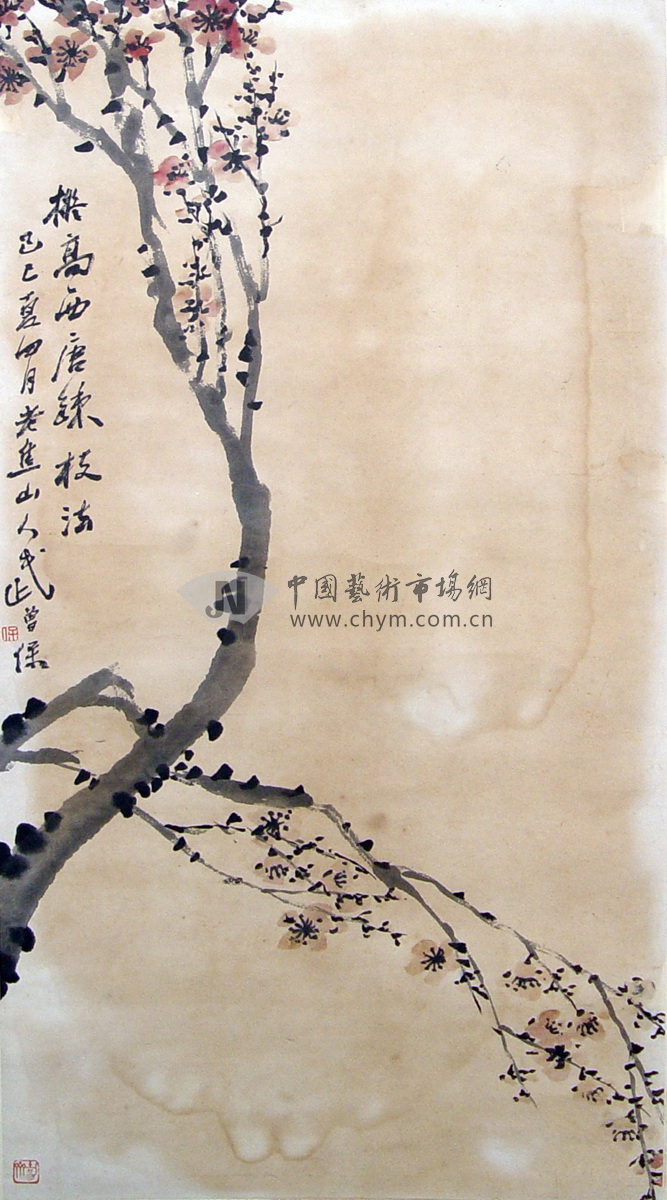 擬高西唐疎枝法
己巳夏四月老焦山人武曾保
中國藝術市場網
www.chym.com.cn